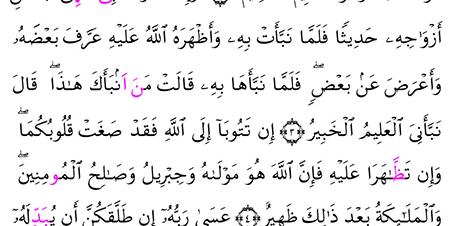 أَزْوَٰجِهِۦ حَدِيثٗا فَلَمَّا نَبَّأَتْ بِهِۦ وَأَظْهَرَهُ اُ۬للَّهُ عَلَيْهِ عَرَّفَ بَعْضَهُۥ
وَأَعْرَضَ عَنۢ بَعْضٖۖ فَلَمَّا نَبَّأَهَا بِهِۦ قَالَتْ مَنَ اَنۢبَأَكَ هَٰذَاۖ قَالَ
نَبَّأَنِيَ اَ۬لْعَلِيمُ اُ۬لْخَبِيرُ ٣ إِن تَتُوبَآ إِلَى اَ۬للَّهِ فَقَدْ صَغَتْ قُلُوبُكُمَاۖ
وَإِن تَظَّٰهَرَا عَلَيْهِ فَإِنَّ اَ۬للَّهَ هُوَ مَوْلَىٰهُ وَجِبْرِيلُ وَصَٰلِحُ اُ۬لْمُومِنِينَۖ
وَالْمَلَٰٓئِكَةُ بَعْدَ ذَٰلِكَ ظَهِيرٌۖ ٤ عَسَىٰ رَبُّهُۥٓ إِن طَلَّقَكُنَّ أَنْ يُبَدِّلَهُۥٓ